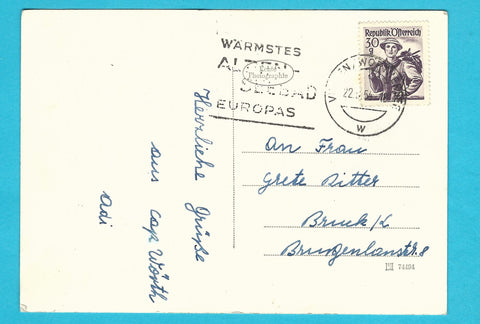 WÄRMSTES
ALPEN-
SEEBAD
EUROPAS
Echte
Photographie
Republik Österreich
30
g
22.
W
Herzliche Grüße
aus Cap Wörth
Adi
An Frau
Grete Ritter
Bruck/L
74494